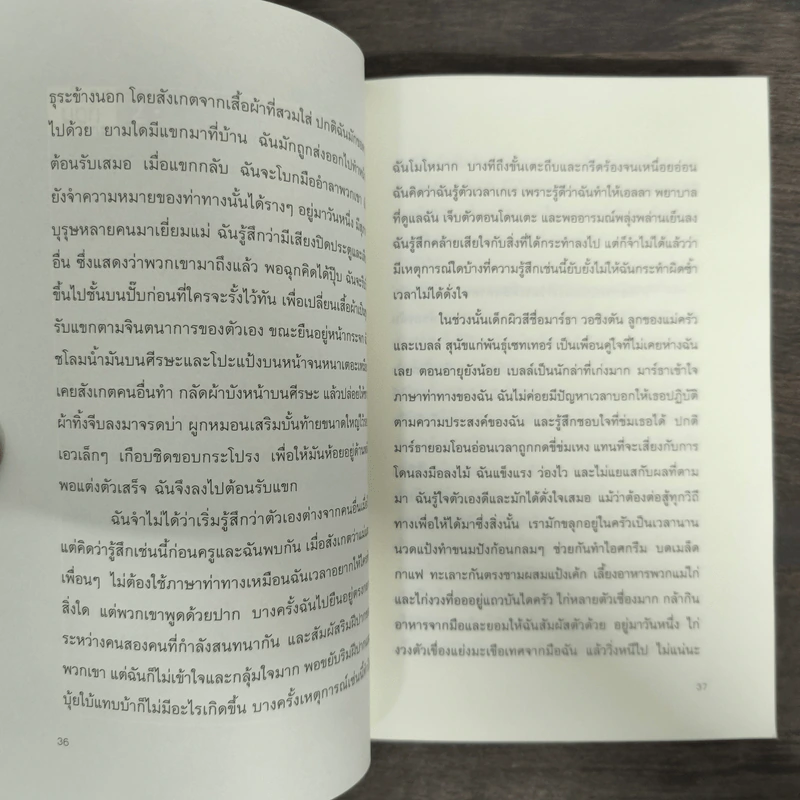 ธุระข้างนอก โดยสังเกตจากเสื้อผ้าที่สวมใส่ ปกติฉันมัก
ไปด้วย ยามใดมีแขกมาที่บ้าน ฉันมักถูกส่งออกไปทำ
ต้อนรับเสมอ เมื่อแขกกลับ ฉันจะโบกมืออำลาพวกเขา
ยังจำความหมายของท่าทางนั้นได้รางๆ อยู่มาวันหนึ่ง
บุรุษหลายคนมาเยี่ยมแม่ ฉันรู้สึกว่ามีเสียงปิดประตูและ
อื่น ซึ่งแสดงว่าพวกเขามาถึงแล้ว พอฉุกคิดได้ปุ๊บ ฉันจะ
ขึ้นไปชั้นบนปั๊บก่อนที่ใครจะรั้งไว้ทัน เพื่อเปลี่ยนเสื้อผ้า
รับแขกตามจินตนาการของตัวเอง ขณะยืนอยู่หน้ากระจก
ชโลมน้ำมันบนศีรษะและโปะแป้งบนหน้าจนหนาเตอะ
เคยสังเกตคนอื่นทำ กลัดผ้าบังหน้าบนศีรษะ แล้วปล่อยให้
ผ้าทิ้งจีบลงมาจรดบ่า ผูกหมอนเสริมบั้นท้ายขนาดใหญ่ไว้
เอวเล็กๆ เกือบชิดขอบกระโปรง เพื่อให้มันห้อยอยู่ด้าน
พอแต่งตัวเสร็จ ฉันจึงลงไปต้อนรับแขก
ฉันจำไม่ได้ว่าเริ่มรู้สึกว่าตัวเองต่างจากคนอื่น
แต่คิดว่ารู้สึกเช่นนี้ก่อนครูและฉันพบกัน เมื่อสังเกตว่า
เพื่อนๆ ไม่ต้องใช้ภาษาท่าทางเหมือนฉันเวลาอยากให้
สิ่งใด แต่พวกเขาพูดด้วยปาก บางครั้งฉันไปยืนอยู่
ระหว่างคนสองคนที่กำลังสนทนากัน และสัมผัสริมฝีปาก
พวกเขา แต่ฉันก็ไม่เข้าใจและกลุ้มใจมาก พอขยับริมฝีปาก
บุ้ยใบ้แทบบ้าก็ไม่มีอะไรเกิดขึ้น บางครั้งเหตุการณ์เช่นนี้
36
ฉันโมโหมาก บางทีถึงขั้นเตะถีบและกรีดร้องจนเหนื่อยอ่อน
ฉันคิดว่าฉันรู้ตัวเวลาเกเร เพราะรู้ดีว่าฉันทำให้เอลลา พยาบาล
ที่ดูแลฉัน เจ็บตัวตอนโดนเตะ และพออารมณ์พลุ่งพล่านเย็นลง
ฉันรู้สึกคล้ายเสียใจกับสิ่งที่ได้กระทำลงไป แต่ก็จำไม่ได้แล้วว่า
มีเหตุการณ์ใดบ้างที่ความรู้สึกเช่นนี้ยับยั้งไม่ให้ฉันกระทำผิดซ้ำ
เวลาไม่ได้ดั่งใจ
ในช่วงนั้นเด็กผิวสีชื่อมาร์ธา วอชิงตัน ลูกของแม่ครัว
และเบลล์ สุนัขแก่พันธุ์เซทเทอร์ เป็นเพื่อนคู่ใจที่ไม่เคยห่างฉัน
เลย ตอนอายุยังน้อย เบลล์เป็นนักล่าที่เก่งมาก มาร์ธาเข้าใจ
ภาษาท่าทางของฉัน ฉันไม่ค่อยมีปัญหาเวลาบอกให้เธอปฏิบัติ
ตามความประสงค์ของฉัน และรู้สึกชอบใจที่ข่มเธอได้ ปกติ
มาร์ธายอมโอนอ่อนเวลาถูกกดขี่ข่มเหง แทนที่จะเสี่ยงกับการ
โดนลงมือลงไม้ ฉันแข็งแรง ว่องไว และไม่แยแสกับผลที่ตาม
มา ฉันรู้ใจตัวเองดีและมักได้ดั่งใจเสมอ แม้ว่าต้องต่อสู้ทุกวิถี
ทางเพื่อให้ได้มาซึ่งสิ่งนั้น เรามักขลุกอยู่ในครัวเป็นเวลานาน
นวดแป้งทำขนมปังก้อนกลมๆ ช่วยกันทำไอศกรีม บดเมล็ด
กาแฟ ทะเลาะกันตรงชามผสมแป้งเค้ก เลี้ยงอาหารพวกแม่ไก่
และไก่งวงที่ออออยู่แถวบันไดครัว ไก่หลายตัวเชื่องมาก กล้ากิน
อาหารจากมือและยอมให้ฉันสัมผัสตัวด้วย อยู่มาวันหนึ่ง ไก่
งวงตัวเขื่องแย่งมะเขือเทศจากมือฉัน แล้ววิ่งหนีไป ไม่แน่นะ
37